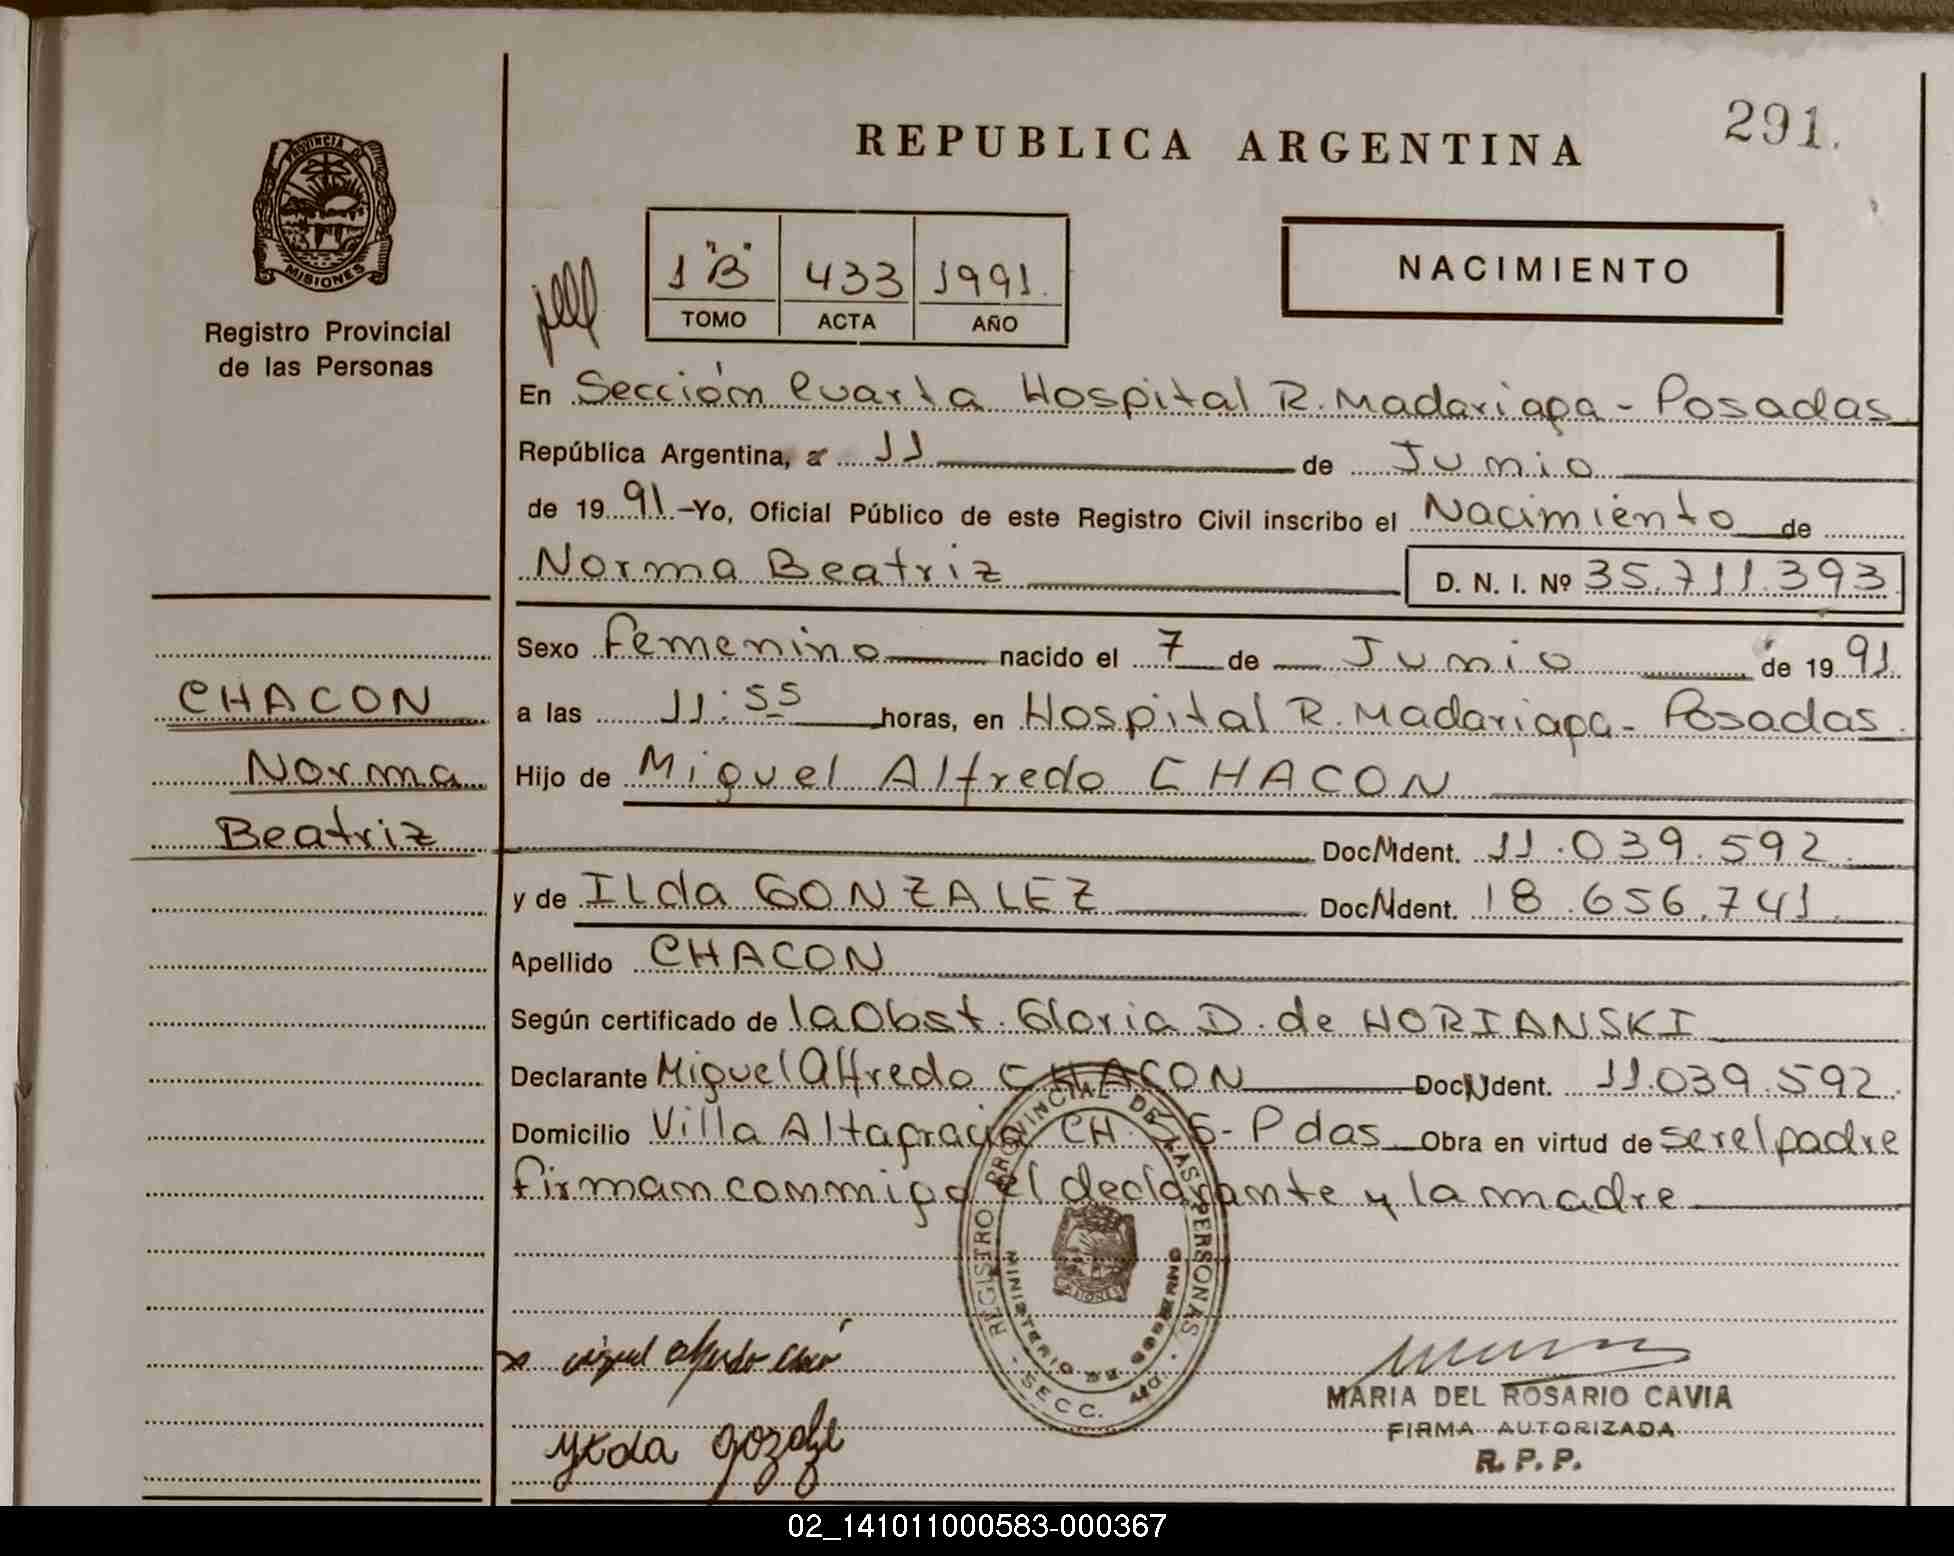 291.
REPUBLICA ARGENTINA
PROVINCIA DE
MISIONES
Registro Provincial
de las Personas
1 "B" 433 1991.
TOMO ACTA AÑO
NACIMIENTO
En Sección Cuarta Hospital R. Madariaga - Posadas
República Argentina, a 11 de Junio
de 1991 - Yo, Oficial Público de este Registro Civil inscribo el Nacimiento de
Norma Beatriz D. N. I. Nº 35.711.393
Sexo Femenino nacido el 7 de Junio de 1991.
CHACON
Norma
Beatriz
a las 11:55 horas, en Hospital R. Madariaga - Posadas.
Hijo de Miguel Alfredo CHACON
Doc. N Ident. 11.039.592.
y de ILda GONZALEZ Doc. N Ident. 18.656.741.
Apellido CHACON
Según certificado de la Obst. Gloria D. de HORIANSKI
Declarante Miguel Alfredo CHACON Doc. N Ident. 11.039.592.
Domicilio Villa Altagracia CH. 6 - Pdas. Obra en virtud de ser el padre
Firman conmigo el declarante y la madre
REGISTRO PROVINCIAL DE LAS PERSONAS
MINISTERIO DE GOBIERNO
SECC. 4ta.
miguel alfredo
MARIA DEL ROSARIO CAVIA
FIRMA AUTORIZADA
R. P. P.
02_141011000583-000367